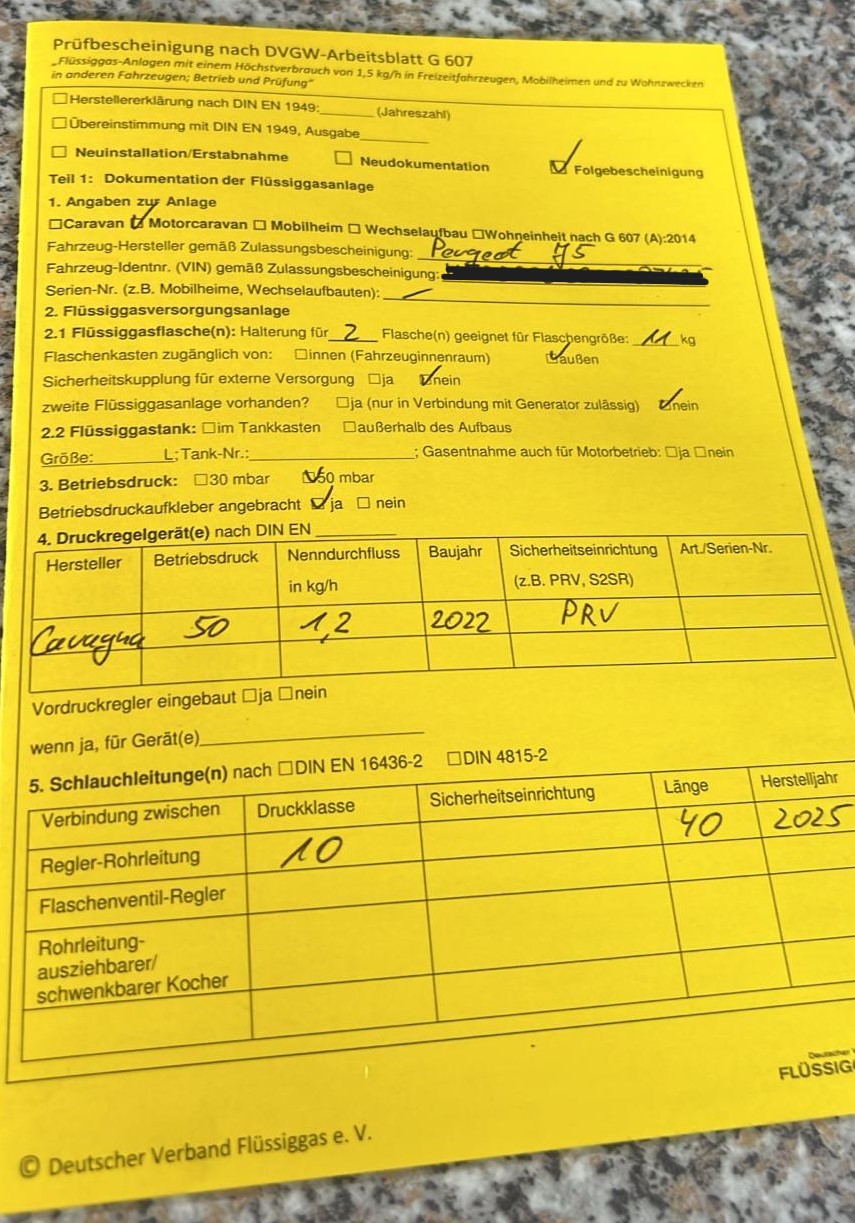 Prüfbescheinigung nach DVGW-Arbeitsblatt G 607
„Flüssiggas-Anlagen mit einem Höchstverbrauch von 1,5 kg/h in Freizeitfahrzeugen, Mobilheimen und zu Wohnzwecken
in anderen Fahrzeugen; Betrieb und Prüfung“
☐Herstellererklärung nach DIN EN 1949:______ (Jahreszahl)
☐Übereinstimmung mit DIN EN 1949, Ausgabe______
☐ Neuinstallation/Erstabnahme ☐ Neudokumentation ☑ Folgebescheinigung
Teil 1: Dokumentation der Flüssiggasanlage
1. Angaben zur Anlage
☐Caravan ☑ Motorcaravan ☐ Mobilheim ☐ Wechselaufbau ☐Wohneinheit nach G 607 (A):2014
Fahrzeug-Hersteller gemäß Zulassungsbescheinigung: Peugeot J5
Fahrzeug-Identnr. (VIN) gemäß Zulassungsbescheinigung:
Serien-Nr. (z.B. Mobilheime, Wechselaufbauten): —
2. Flüssiggasversorgungsanlage
2.1 Flüssiggasflasche(n): Halterung für 2 Flasche(n) geeignet für Flaschengröße: 11 kg
Flaschenkasten zugänglich von: ☐innen (Fahrzeuginnenraum) ☑außen
Sicherheitskupplung für externe Versorgung ☐ja ☑nein
zweite Flüssiggasanlage vorhanden? ☐ja (nur in Verbindung mit Generator zulässig) ☑nein
2.2 Flüssiggastank: ☐im Tankkasten ☐außerhalb des Aufbaus
Größe:______L; Tank-Nr.:______; Gasentnahme auch für Motorbetrieb: ☐ja ☐nein
3. Betriebsdruck: ☐30 mbar ☑50 mbar
Betriebsdruckaufkleber angebracht ☑ja ☐ nein
4. Druckregelgerät(e) nach DIN EN ______
Hersteller Betriebsdruck Nenndurchfluss in kg/h Baujahr Sicherheitseinrichtung (z.B. PRV, S2SR) Art./Serien-Nr.
Cavagna 50 1,2 2022 PRV
Vordruckregler eingebaut ☐ja ☐nein
wenn ja, für Gerät(e)______
5. Schlauchleitunge(n) nach ☐DIN EN 16436-2 ☐DIN 4815-2
Verbindung zwischen Druckklasse Sicherheitseinrichtung Länge Herstelljahr
Regler-Rohrleitung 10 40 2025
Flaschenventil-Regler
Rohrleitung-
ausziehbarer/
schwenkbarer Kocher
Deutscher
© Deutscher Verband Flüssiggas e. V.